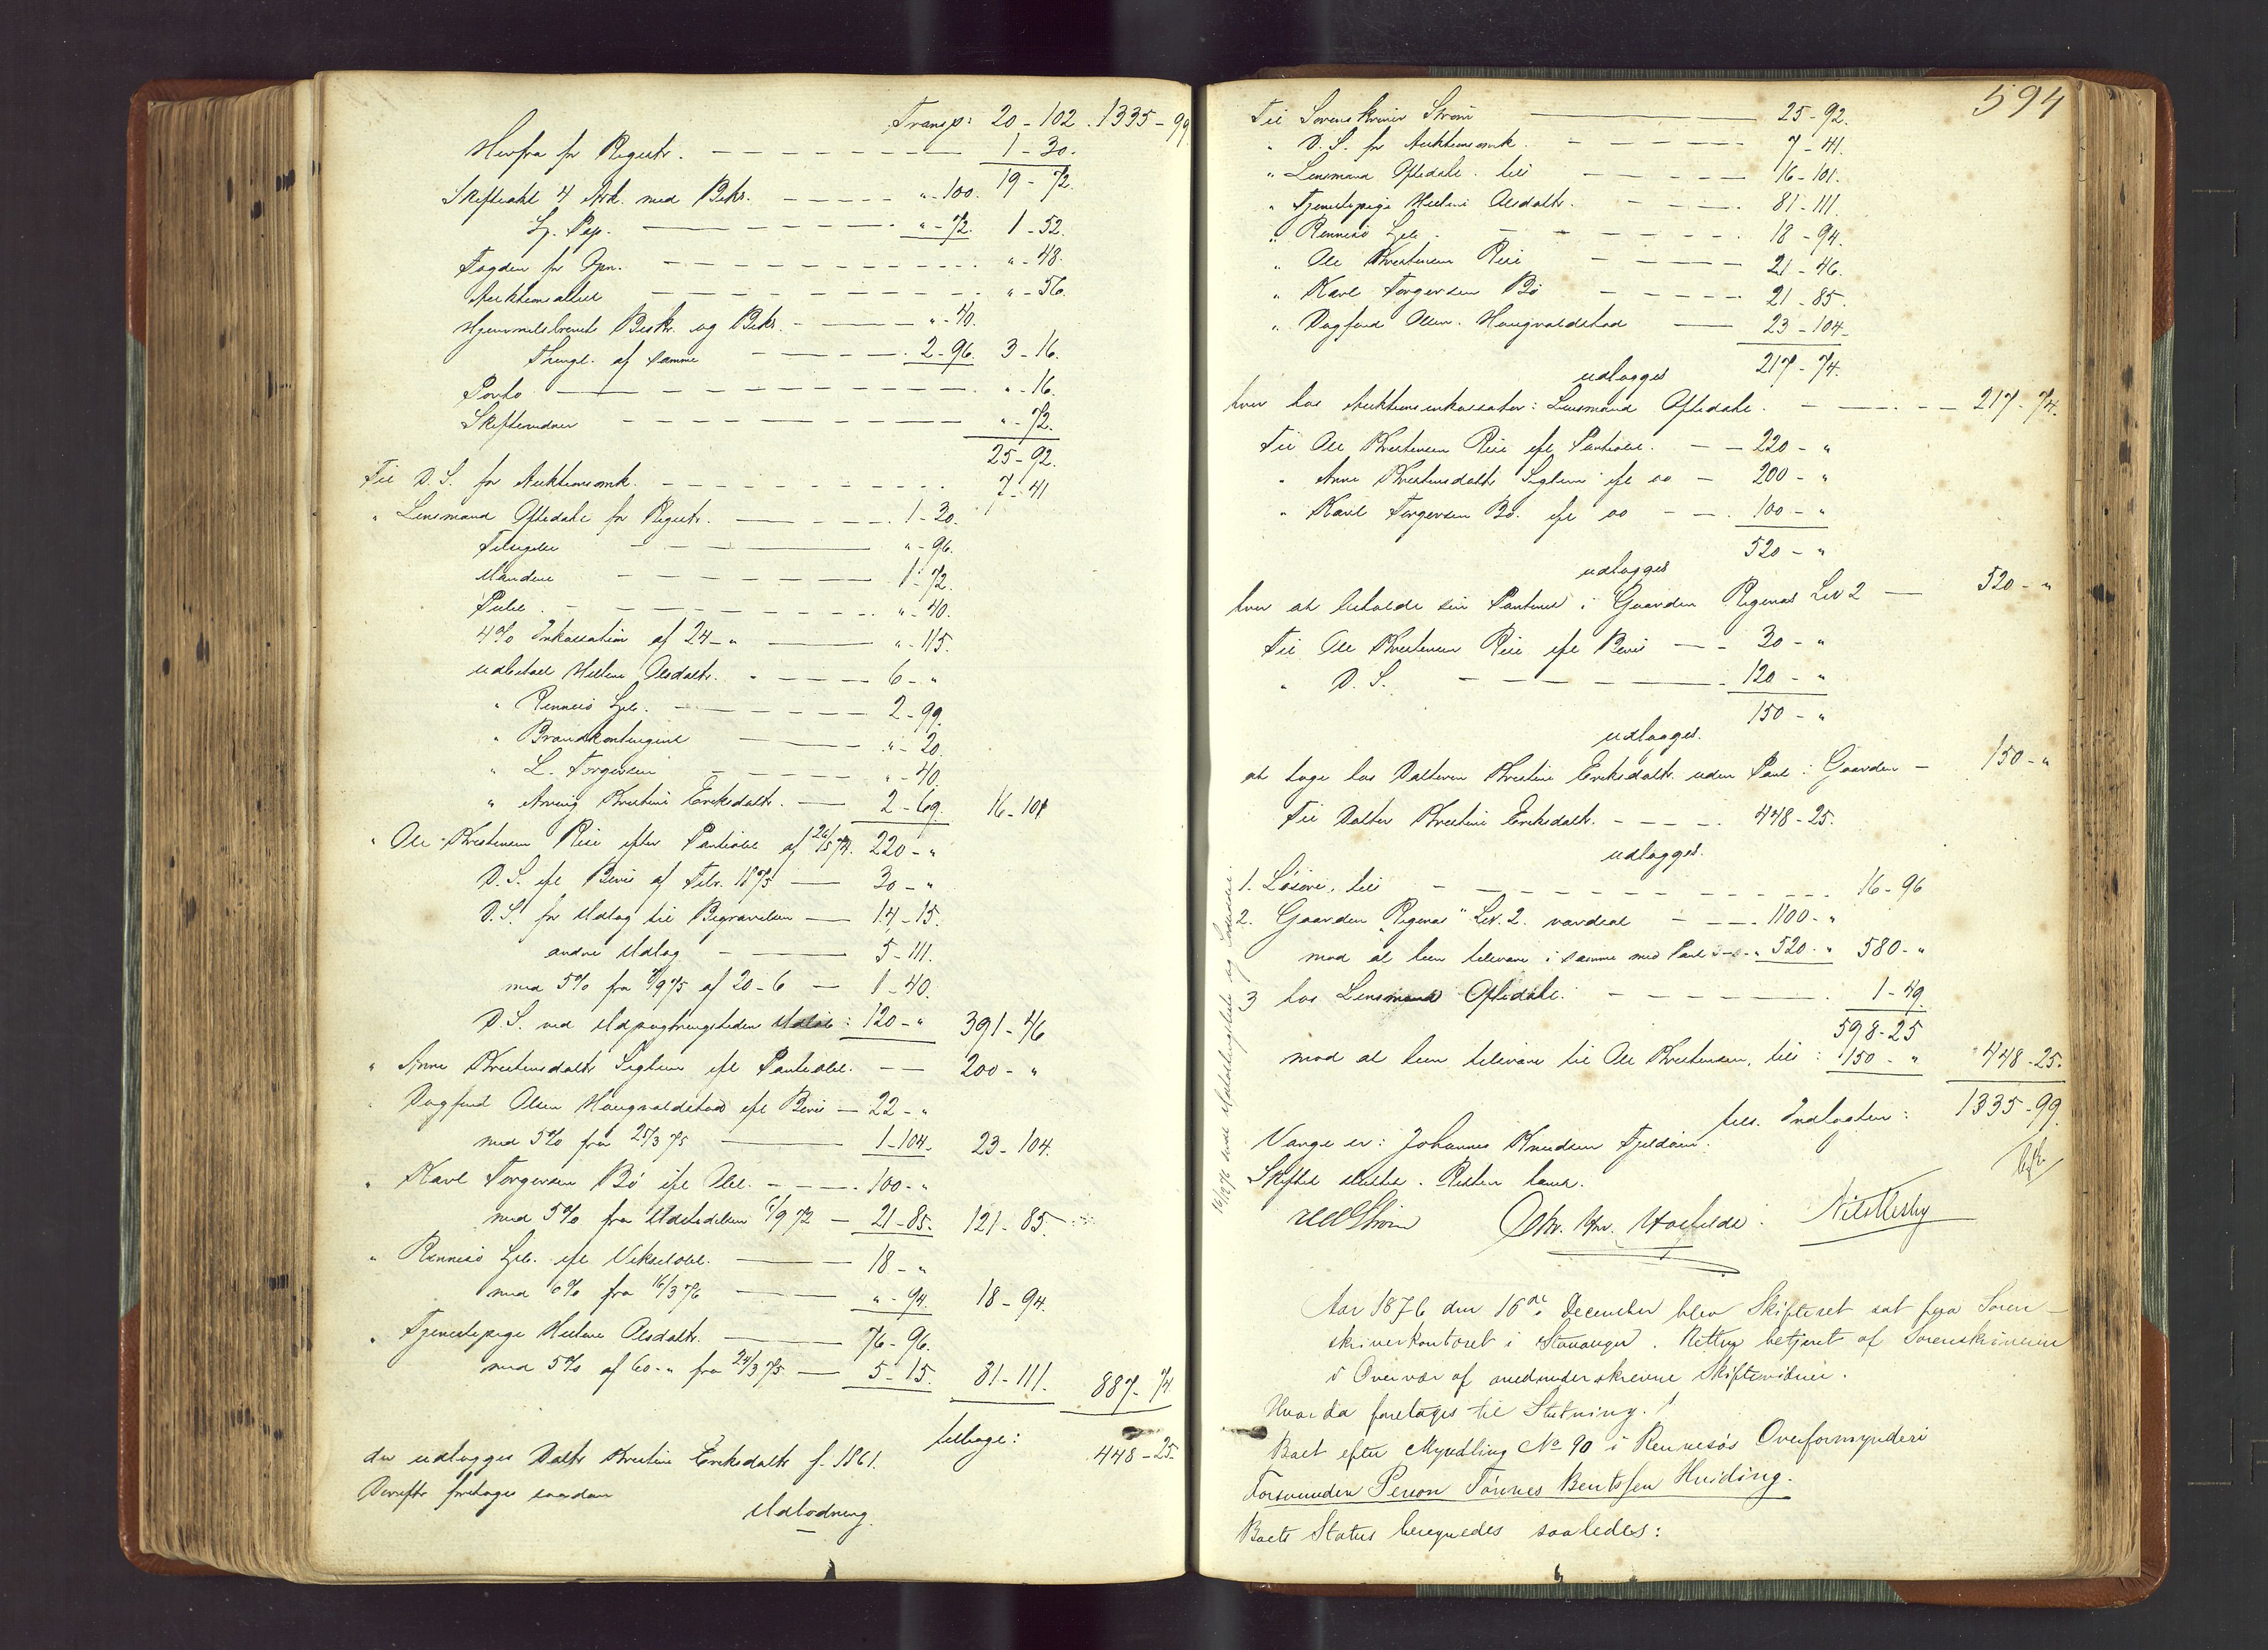 Transp: 20 - 102 . 1335 - 99
Herfra for Registr. 1 - 30.
19 - 72.
Skifteakt 4 Ark. med Bekr. " - 100.
St. Pap. " - 72. 1 - 52.
Fogden for Opn. " - 48.
Auktionsattest " - 56.
Hjemmelsbrevets Beskr. og Bekr. " - 40.
Thingl. af samme 2 - 96. 3 - 16.
Porto " - 16.
Skiftevidner " - 72.
25 - 92.
Til D. S. for Auktionsomk. 7 - 41
" Lensmand Oftedahl for Registr. 1 - 30.
Tilsigelse " - 96.
Mændene 1 - 72.
" - 40.
4% Inkassation af 24 - " " - 115.
udbetalt Helene Olsdatr. 6 - "
" Rennesø Spb. 2 - 99.
" Brandkontingent " - 20.
" L. Torgersen " - 40.
" Arving Kristine Eriksdatr. 2 - 69. 16 - 101
" Ole Kristensen Reie efter Pantiobl. af 26/5 74. 220 - "
D. S. efl Bevis af Febr. 1875 30 - "
D. S. for Udlæg til Begravelsen 14 - 15.
andre Udlæg 5 - 111.
med 5% fra 9/9 75 af 20 - 6 1 - 40.
D. S. ved 120 - " 391 - 46
" Anne Kristensdatr Sigtun efl Pantiobl. 200 - "
" Dagfind Olsen Haugvaldstad efl Bevis 22 - "
med 5% fra 25/3 75 1 - 104. 23 - 104.
" Karl Torgersen Bø efl Obl. 100 - "
med 5% fra Udstedelsen 6/9 72 21 - 85. 121 - 85.
" Rennesø Spb. efl Vekselobl. 18 - "
med 6% fra 16/3 76 " - 94. 18 - 94.
" Tjenestepige Helene Olsdatr. 76 - 96.
med 5% af 60 - " fra 24/3 75. 5 - 15. 81 - 111. 887 - 74.
tilbage: 448 - 25.
der udlægges Datr. Kristine Eriksdatr f. 1861.
Derefter foretages saadan
Udlodning.
594
Til Sorenskriver Strøm 25 - 92.
" D. S. for Auktionsomk. 7 - 41.
" Lensmand Oftedahl. tils 16 - 101.
" Tjenestepige Helene Olsdatr. 81 - 111.
" Rennesø Spb. 18 - 94.
" Ole Kristensen Reie 21 - 46.
" Karl Torgersen Bø 21 - 85.
" Dagfind Olsen Haugvaldstad 23 - 104
217 - 74.
udlægges
hver hos Auktionsinkassator: Lensmand Oftedahl. 217 - 74.
Til Ole Kristensen Reie efl Pantiobl. 220 - "
" Anne Kristensdatr Sigtun efl do 200 - "
" Karl Torgersen Bø. efl do 100 - "
520 - "
udlægges
hver at beholde sin Panteret i Gaarden Rigenæs Lnr 2 520 - "
Til Ole Kristensen Reie efl Bevis 30 - "
" D. S. 120 - "
150 - "
udlægges.
at tage hos Datteren Kristine Eriksdatr. uden Pant i Gaarden 150 - "
Til Datter Kristine Eriksdatr. 448 - 25.
udlægges.
1. Løsøre, tils 16 - 96
2. Gaarden "Rigenæs" Lnr. 2. værdsat 1100 - "
mod at hun tilsvarer i samme med Pant 520 - " 580 - "
3 hos Lensmand Oftedahl. 1 - 49
598 - 25
mod at hun tilsvarer til Ole Kristensen, tils: 150 - " 448 - 25.
tils. Indtægten: 1335 - 99.
Værge er: Johannes Knudsen Fjeldøen.
Skiftet sluttet. Retten hævet.
Strøm Nils Mæsby
Aar 1876 den 16de December blev Skifteret sat paa Soren-
skriverkontoret i Stavanger. Retten betjent af Sorenskriveren
i Overvær af medunderskrevne Skiftevidner.
Hvor da foretages til Slutning.
Boet efter Myndling No 90 i Rennesøs Overformynderi
Forsvunden Person Tønnes Bentsen Hviding.
Boets Status beregnedes saaledes: